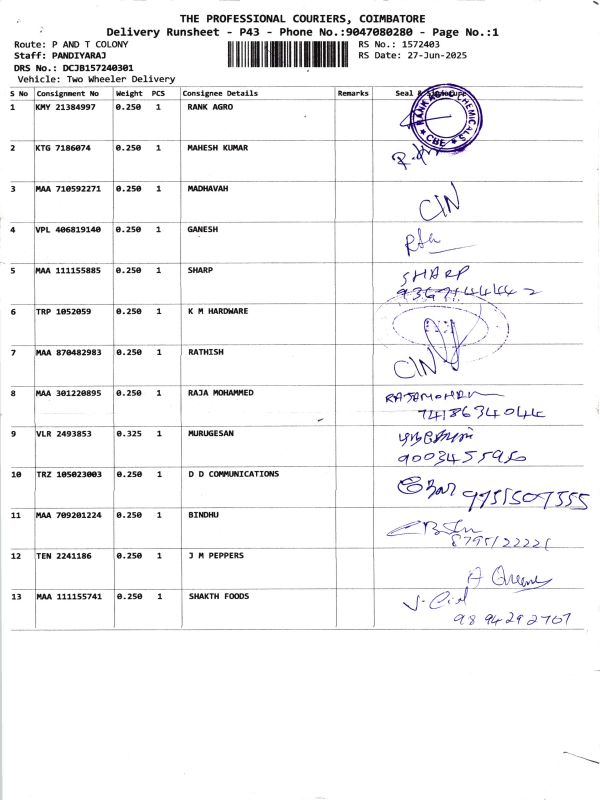 THE PROFESSIONAL COURIERS, COIMBATORE
Delivery Runsheet - P43 - Phone No.:9047080280 - Page No.:1
Route: P AND T COLONY
RS No.: 1572403
Staff: PANDIYARAJ
RS Date: 27-Jun-2025
DRS No.: DCJB157240301
Vehicle: Two Wheeler Delivery
S No Consignment No Weight PCS Consignee Details Remarks Seal & Signature
1 KMY 21384997 0.250 1 RANK AGRO
RANK AGRO CHEMICALS * CBE *
2 KTG 7186074 0.250 1 MAHESH KUMAR
3 MAA 710592271 0.250 1 MADHAVAH
CIN
4 VPL 406819140 0.250 1 GANESH
5 MAA 111155885 0.250 1 SHARP
SHARP
6 TRP 1052059 0.250 1 K M HARDWARE
7 MAA 870482983 0.250 1 RATHISH
CIN
8 MAA 301220895 0.250 1 RAJA MOHAMMED
7418634044
9 VLR 2493853 0.325 1 MURUGESAN
9003455956
10 TRZ 105023003 0.250 1 D D COMMUNICATIONS
9755507555
11 MAA 709201224 0.250 1 BINDHU
8795122221
12 TEN 2241186 0.250 1 J M PEPPERS
13 MAA 111155741 0.250 1 SHAKTH FOODS
9894292707